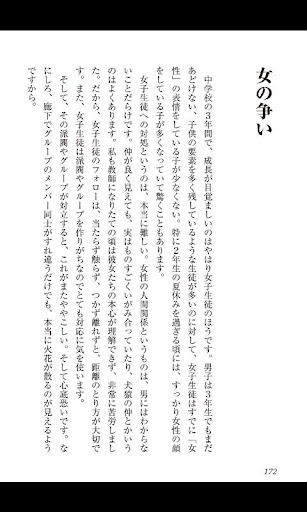 女の争い
中学校の３年間で、成長が目覚ましいのはやはり女子生徒のほうです。男子は３年生でもまだ
あどけない、子供の要素を多く残しているような生徒が多いのに対して、女子生徒はすでに「女
性」の表情をしている子が少なくない。特に２年生の夏休みを過ぎる頃には、すっかり女性の顔
をしている子が多くなっていて驚くこともあります。
女子生徒への対処というのは、本当に難しい。女性の人間関係というものは、男にはわからな
いことだらけです。仲が良く見えても、実はものすごくいがみ合っていたり、犬猿の仲とかいう
のはよくあります。私も教師になりたての頃は彼女たちの本心が理解できず、非常に苦労しまし
た。だから、女子生徒のフォローは、当たらず触らず、つかず離れずと、距離のとり方が大切で
す。また、女子生徒は派閥やグループを作りがちなのでとても対応に気を使います。
そして、その派閥やグループが対立すると、これがまたややこしい。そして心底恐いです。な
にしろ、廊下でグループのメンバー同士がすれ違うだけでも、本当に火花が散るのが見えるよう
ですから。
172